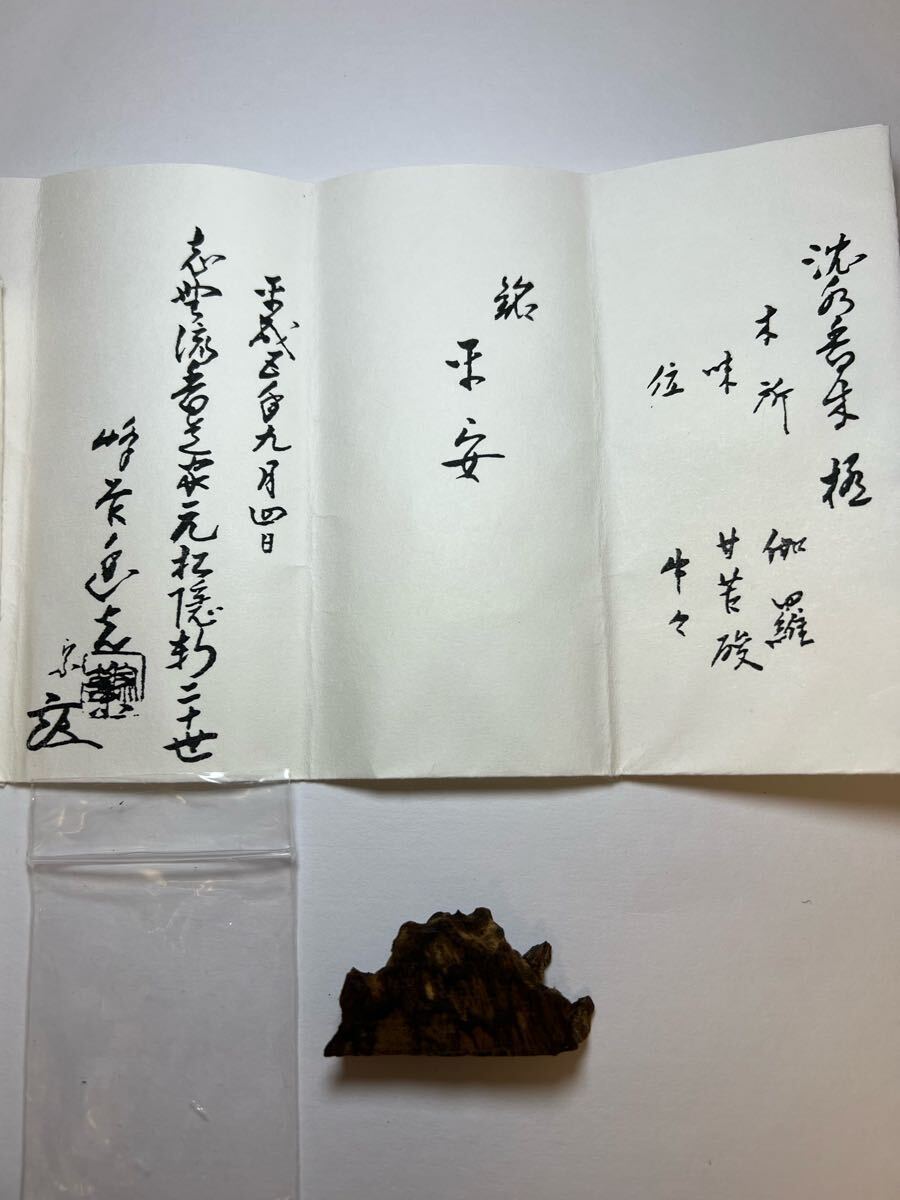 沈水香木 極
木所 伽羅
味 甘苦酸
位 上々
銘
平安
平成五年九月四日
志野流香道家元松隠軒二十世
峰谷幽光斎
宗